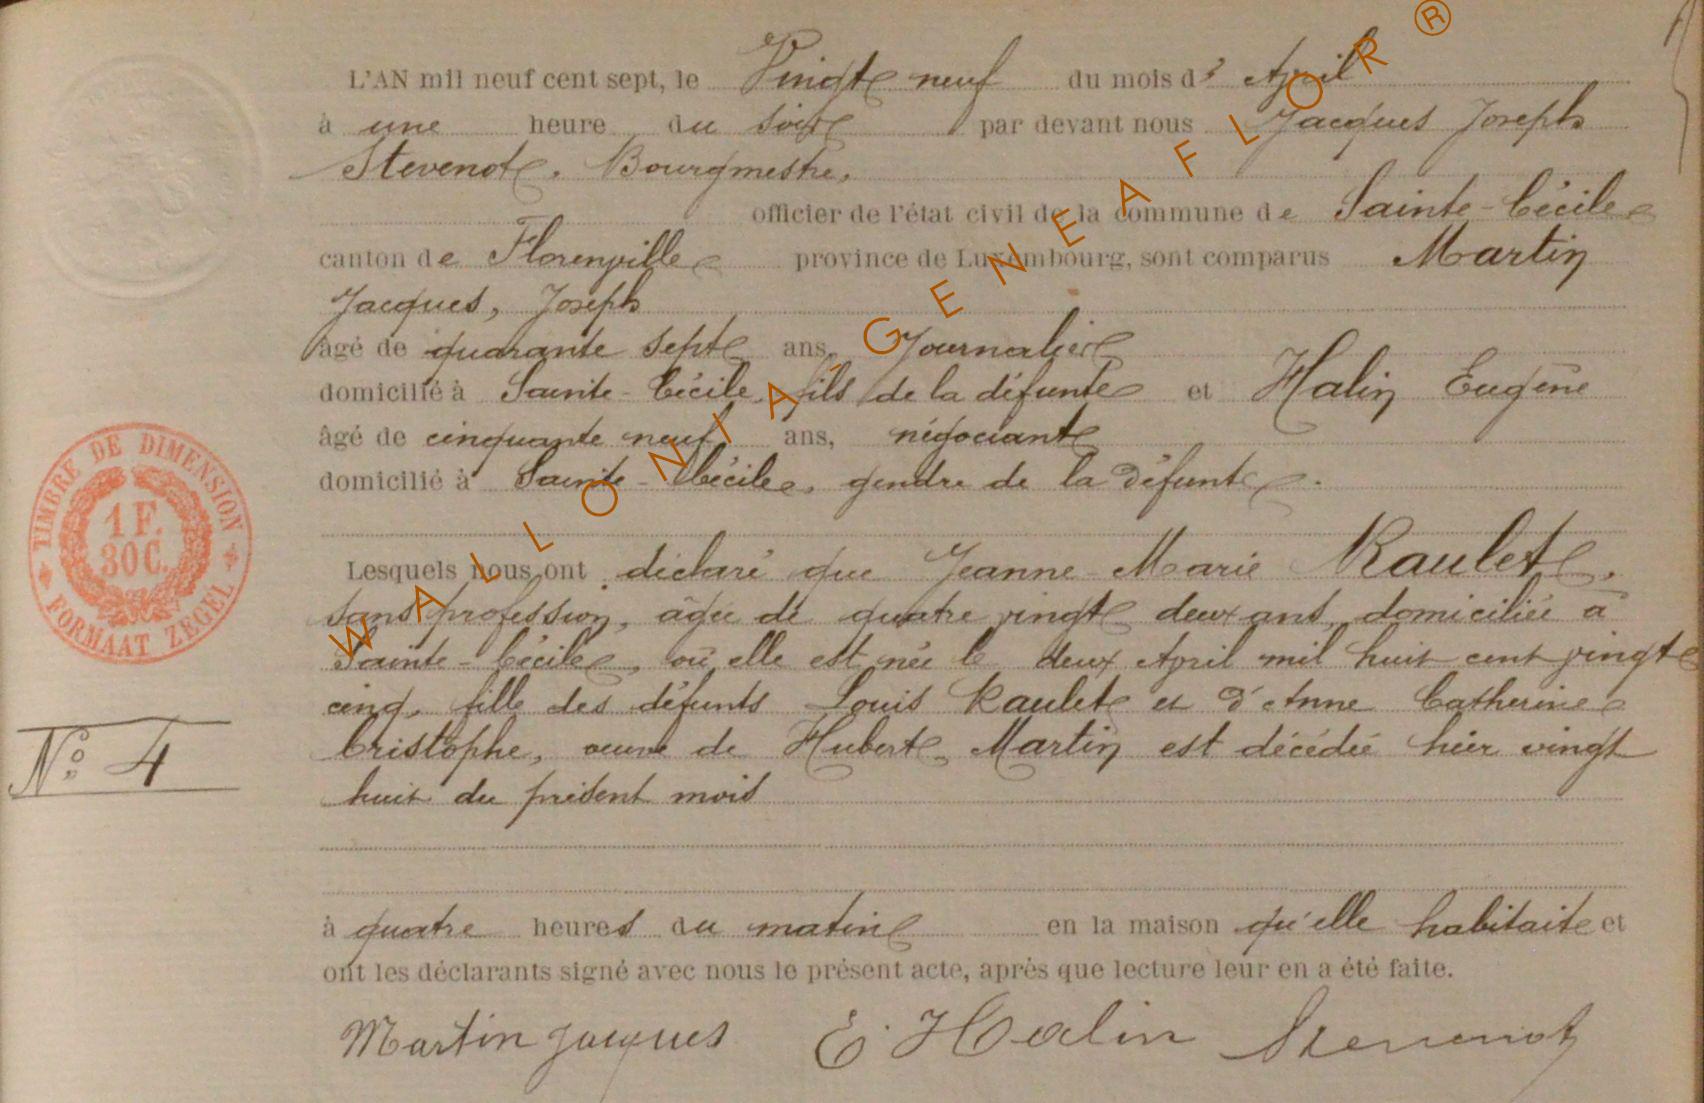 L'AN mil neuf cent sept, le Vingt neuf du mois d' April
à une heure du soir par devant nous Jacques Joseph
Stevenot, Bourgmestre,
officier de l'état civil de la commune de Sainte-Cécile
canton de Florenville province de Luxembourg, sont comparus Martin
Jacques, Joseph
âgé de quarante sept ans, Journalier
domicilié à Sainte-Cécile, fils de la défunte et Halin Eugène
âgé de cinquante neuf ans, négociant
domicilié à Sainte-Cécile, gendre de la défunte.
Lesquels nous ont déclaré que Jeanne-Marie Raulet,
sans profession, âgée de quatre vingt deux ans, domiciliée à
Sainte-Cécile, où elle est née le deux April mil huit cent vingt
cinq, fille des défunts Louis Raulet et d'Anne Catherine
Cristophe, veuve de Hubert Martin est décédée hier vingt
huit du présent mois
à quatre heures du matin en la maison qu'elle habitait et
ont les déclarants signé avec nous le présent acte, après que lecture leur en a été faite.
Martin Jacques E. Halin Stevenot
TIMBRE DE DIMENSION
1 F.
30 C.
FORMAAT ZEGEL
N° 4
WALLONIA - GENEAFLOR ®